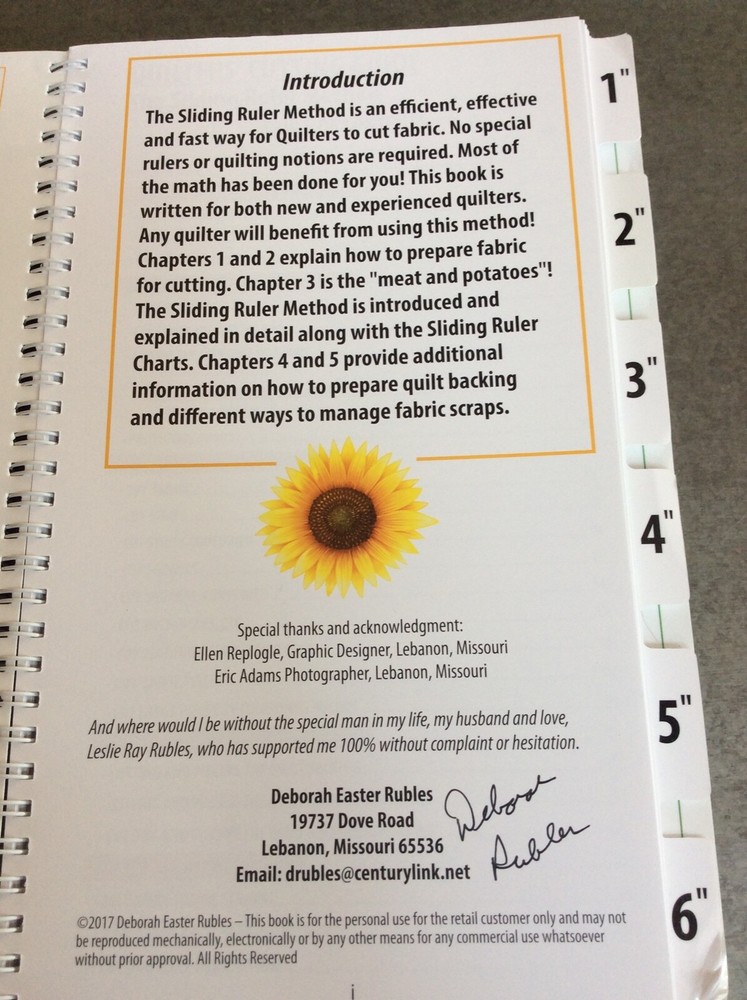 Introduction
The Sliding Ruler Method is an efficient, effective
and fast way for Quilters to cut fabric. No special
rulers or quilting notions are required. Most of
the math has been done for you! This book is
written for both new and experienced quilters.
Any quilter will benefit from using this method!
Chapters 1 and 2 explain how to prepare fabric
for cutting. Chapter 3 is the "meat and potatoes"!
The Sliding Ruler Method is introduced and
explained in detail along with the Sliding Ruler
Charts. Chapters 4 and 5 provide additional
information on how to prepare quilt backing
and different ways to manage fabric scraps.
Special thanks and acknowledgment:
Ellen Replogle, Graphic Designer, Lebanon, Missouri
Eric Adams Photographer, Lebanon, Missouri
And where would I be without the special man in my life, my husband and love,
Leslie Ray Rubles, who has supported me 100% without complaint or hesitation.
Deborah Easter Rubles
19737 Dove Road
Lebanon, Missouri 65536
Email: drubles@centurylink.net
Deborah
Rubles
©2017 Deborah Easter Rubles – This book is for the personal use for the retail customer only and may not
be reproduced mechanically, electronically or by any other means for any commercial use whatsoever
without prior approval. All Rights Reserved
i
1"
2"
3"
4"
5"
6"